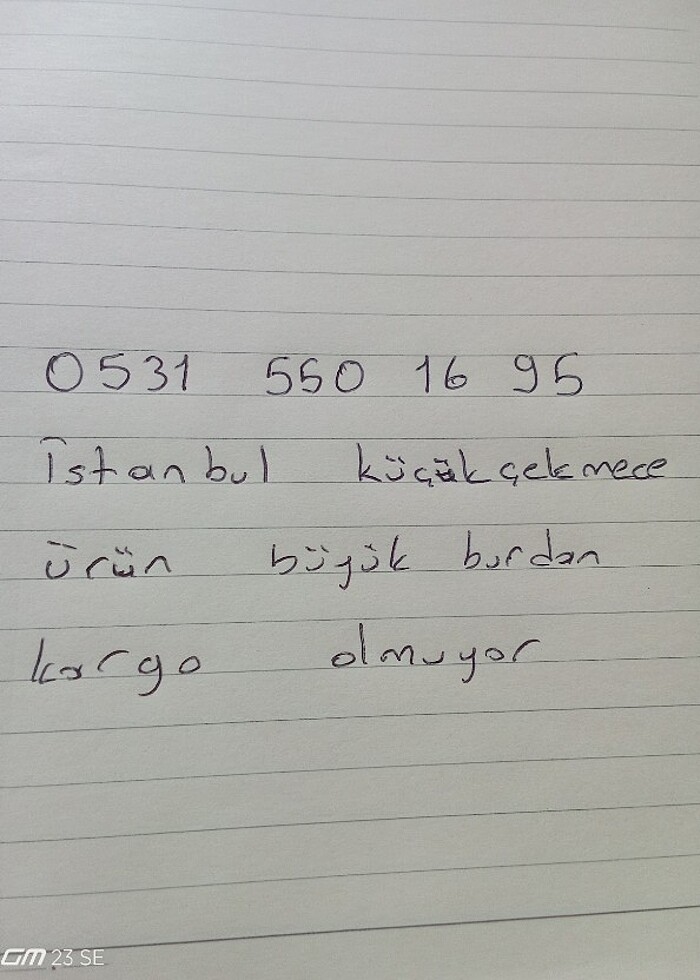 0531 550 16 95
İstanbul küçükçekmece
ürün büyük burdan
kargo olmuyor
GM 23 SE